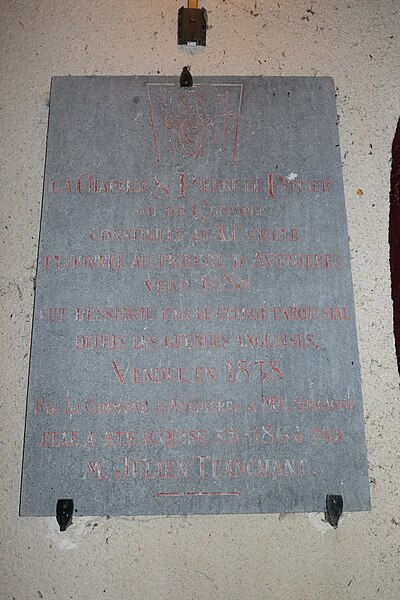 LA CHAPELLE St PIERRE LE POTIER
CONSTRUITE AU XIe SIECLE
ET DONNÉE AU PRIEURÉ D'AVENIÈRES
VERS
FUT DESSERVIE PAR LE CLERGÉ PAROISSIAL
DEPUIS LES GUERRES ANGLAISES.
VENDUE EN 1838
PAR LA COMMUNE D'AVENIÈRES A
ELLE A ÉTÉ ACQUISE EN 1864 PAR
M. JULIEN TRANCHANT.